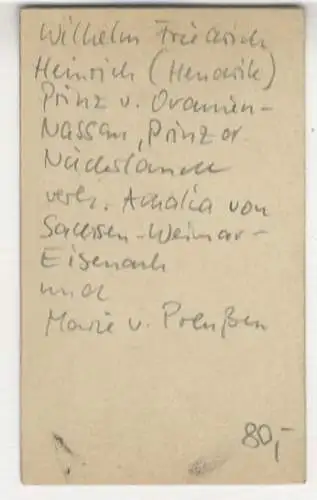 Wilhelm Friedrich
Heinrich (Hendrik)
Prinz v. Oranien-
Nassau, Prinz der
Niederlande
verh. Amalia von
Sachsen-Weimar-
Eisenach
und
Marie v. Preußen
80,-